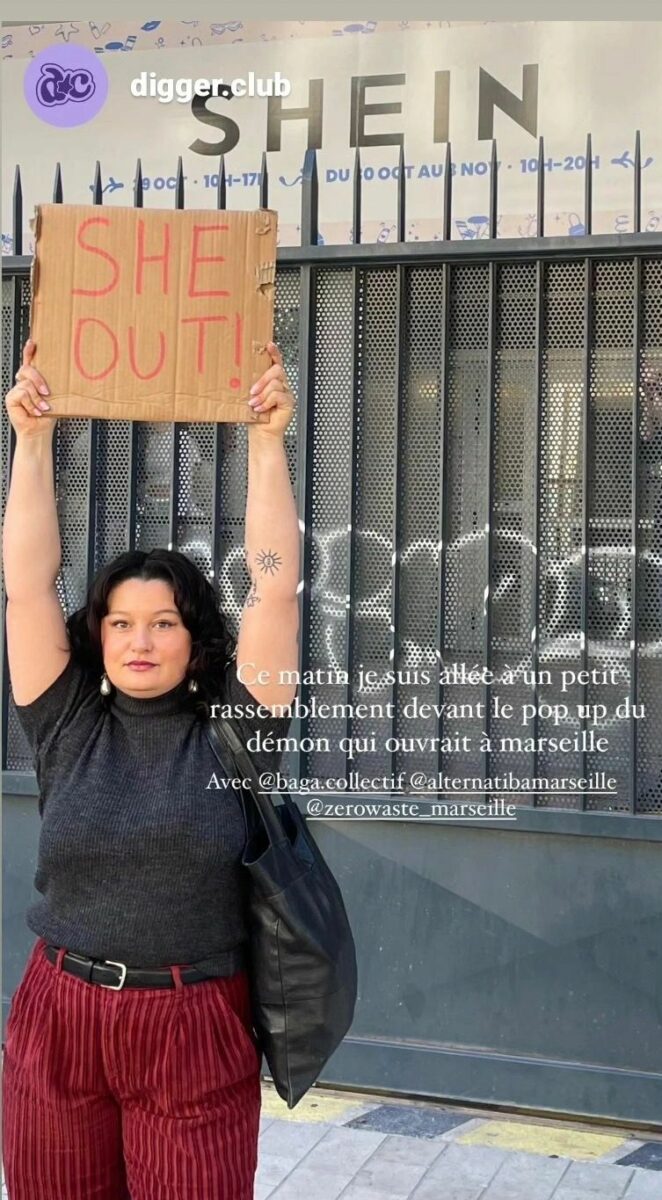 digger.club
SHEIN
29 OCT · 10H-17H DU 30 OCT AU 3 NOV · 10H-20H
SHE
OUT!
Ce matin je suis allée à un petit
rassemblement devant le pop up du
démon qui ouvrait à marseille
Avec @baga.collectif @alternatibamarseille
@zerowaste_marseille